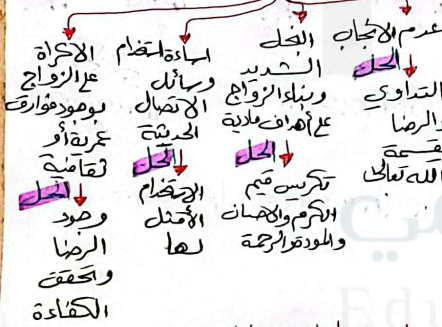 عدم الانجاب
الحل
التداوي
والرضا
بقسمة
الله تعالى
البخل
الشديد
وبناء الزواج
على أهداف مادية
الحل
تكريس قيم
الكرم والاحسان
والمودة والرحمة
اساءة استخدام
وسائل
الاتصال
الحديثة
الحل
الاستخدام
الأمثل
لها
الاكراة
على الزواج
بوجود فوارق
عمرية أو
ثقافية
الحل
وجود
الرضا
وتحقق
الكفاءة